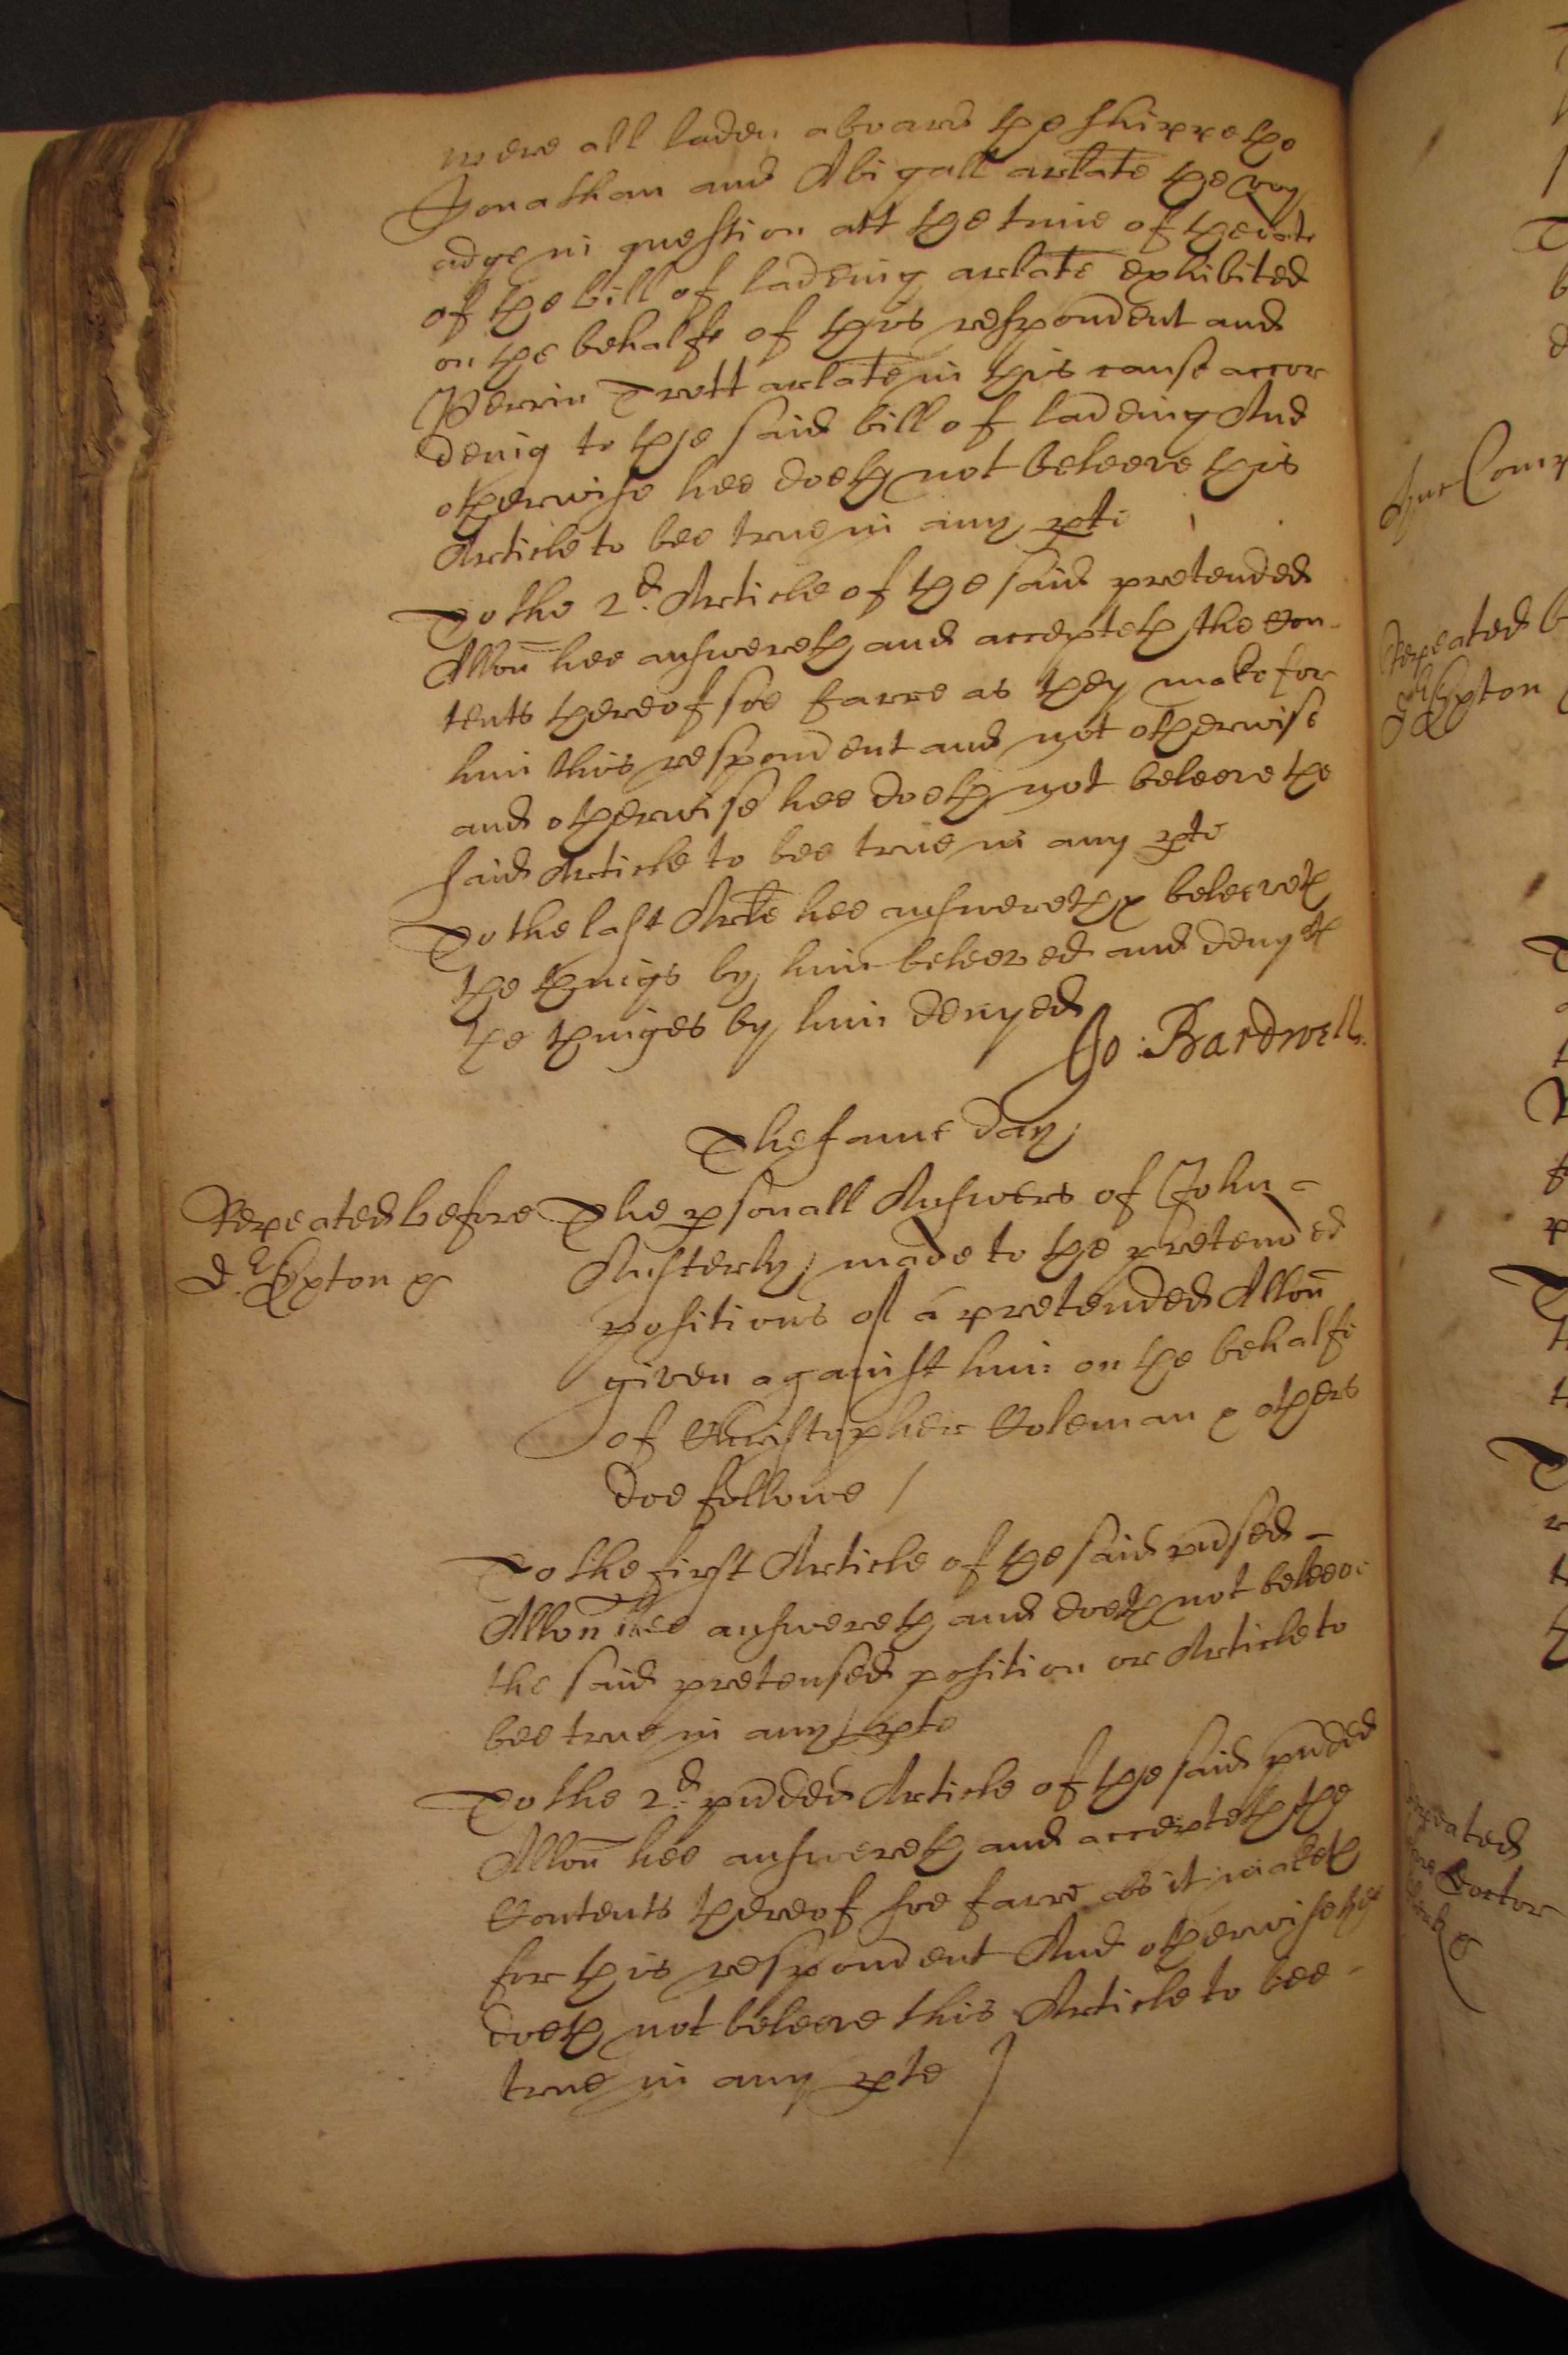 were all laden aboard the shippe the
Jonathan and Abigall arlate the voy
adge in question att the time of the date
of the bill of ladeing arlate exhibited
on the behalfe of this respondent and
Perrin Trott arlate in this cause accor
deing to the said bill of ladeing And
otherwise hee doeth not beleeve this
Article to bee true in any pte
To the 2d. Article of the said pretended
Allon hee answereth and accepteth the Con-
tents thereof soe farre as they make for
him this respondent and not otherwise
and otherwise hee doeth not beleeve the
said Article to bee true in any pte
To the last Arle hee answereth & beleeveth
the things by him beleeved and denyeth
the thinges by him denyed
Jo: Bardwell.
The same day
Repeated before
Dr. Exton &
The psonall Answers of John -
Austerly made to the pretended
positions of a pretended Allon
given against him on the behalfe
of Christopher Coleman & others
doe followe /
To the first Article of the said pndsed -
Allon hee answereth and doeth not beleeve
the said pretensed position or Article to
bee true in any pte
To the 2d. pndded Article of the said pndded
Allon hee answereth and accepteth the
Contents thereof soe farre as it maketh
for this respondent And otherwise hee
doeth not beleeve this Article to bee -
true in any pte /
Repeated b
Dr Exton
Doctor